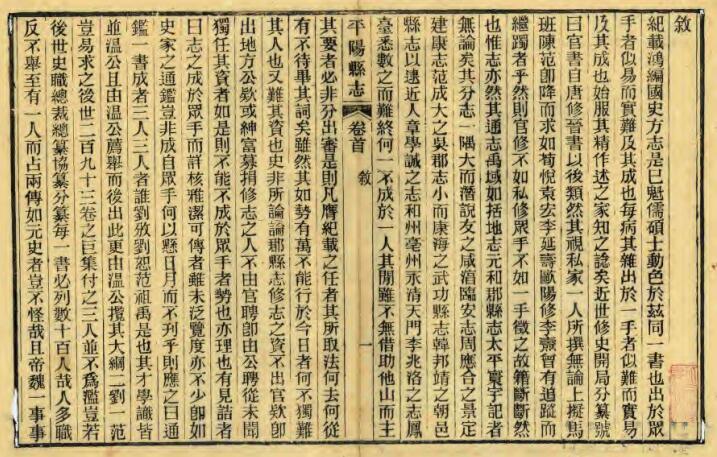 敘
紀載鴻編國史方志是已魁儒碩士動色於茲同一書也出於眾
手者似易而實難及其成也每病其雜出於一手者似難而實易
及其成也始服其精作述之家知之諗矣近世修史開局分纂號
曰官書自唐修晉書以後類然其視私家一人所撰無論上擬馬
班陳范卽降而求如荀悅袁宏李延壽歐陽修李燾曾有追蹤而
繼躅者乎然則官修不如私修眾手不如一手徵之故籍斷斷然
也惟志亦然其通志禹域如括地志元和郡縣志太平寰宇記者
無論矣其分志一隅大而潛說友之咸淳臨安志周應合之景定
建康志范成大之吳郡志小而康海之武功縣志韓邦靖之朝邑
縣志以逮近人章學誠之志和州亳州永清天門李兆洛之志鳳
臺悉數之而難終何一不成於一人其閒雖不無借助他山而主
平陽縣志
卷首
敘
一
其要者必非分出審是則凡膺紀載之任者其所取法何去何從
有不待畢其詞矣雖然其如勢有萬不能行於今日者何不獨難
其人也又難其資也史非所論論郡縣志修志之資不出官欵卽
出地方公欵或紳富募捐修志之人不由官聘卽由公聘從未聞
獨任其資者如是則不能不成於眾手者勢也亦理也有見詰者
曰志之成於眾手而詳核雅潔可傳者雖未泛覽度亦不少卽如
史家之通鑑豈非成自眾手何以懸日月而不刊乎則應之曰通
鑑一書成者三人三人者誰劉攽劉恕范祖禹是也其才學識皆
並溫公且由溫公薦舉而後出此更由溫公攬其大綱二劉一范
豈易求之後世二百九十三卷之巨集付之三人並不爲濫豈若
後世史職總裁總纂協纂分纂每一書必列數十百人哉人多職
反不舉至有一人而占兩傳如元史者豈不怪哉且帝魏一事事